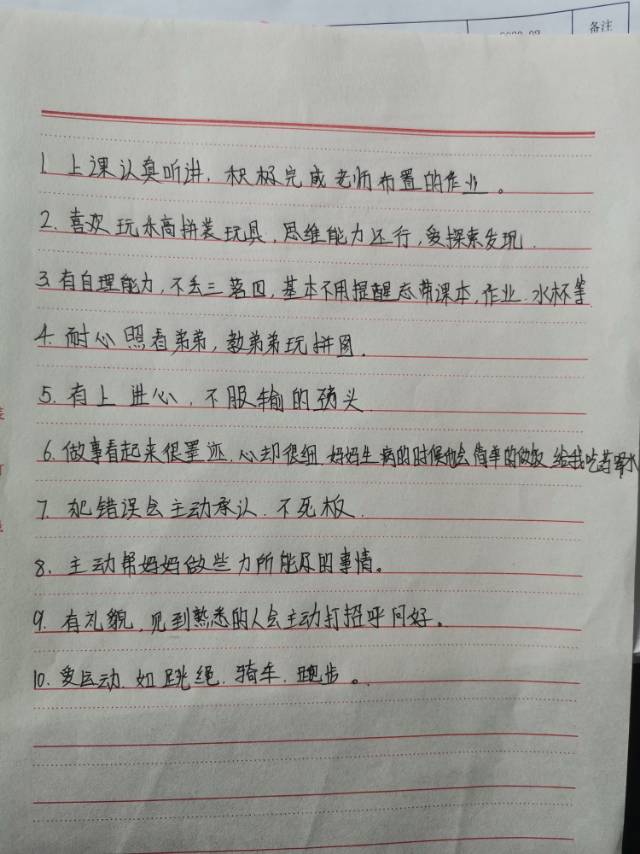 备注
1. 上课认真听讲, 积极完成老师布置的作业。
2. 喜欢玩乐高拼装玩具, 思维能力还行, 爱探索发现.
3. 有自理能力, 不丢三落四, 基本不用提醒忘带课本, 作业. 水杯等
4. 耐心照看弟弟, 教弟弟玩拼图.
5. 有上进心, 不服输的劲头
6. 做事看起来很墨迹. 心却很细. 妈妈生病的时候他会简单的做饭 给我吃药 水
7. 犯错误会主动承认. 不死板.
8. 主动帮妈妈做些力所能及的事情。
9. 有礼貌, 见到熟悉的人会主动打招呼问好。
10. 爱运动. 如跳绳. 骑车. 跑步。